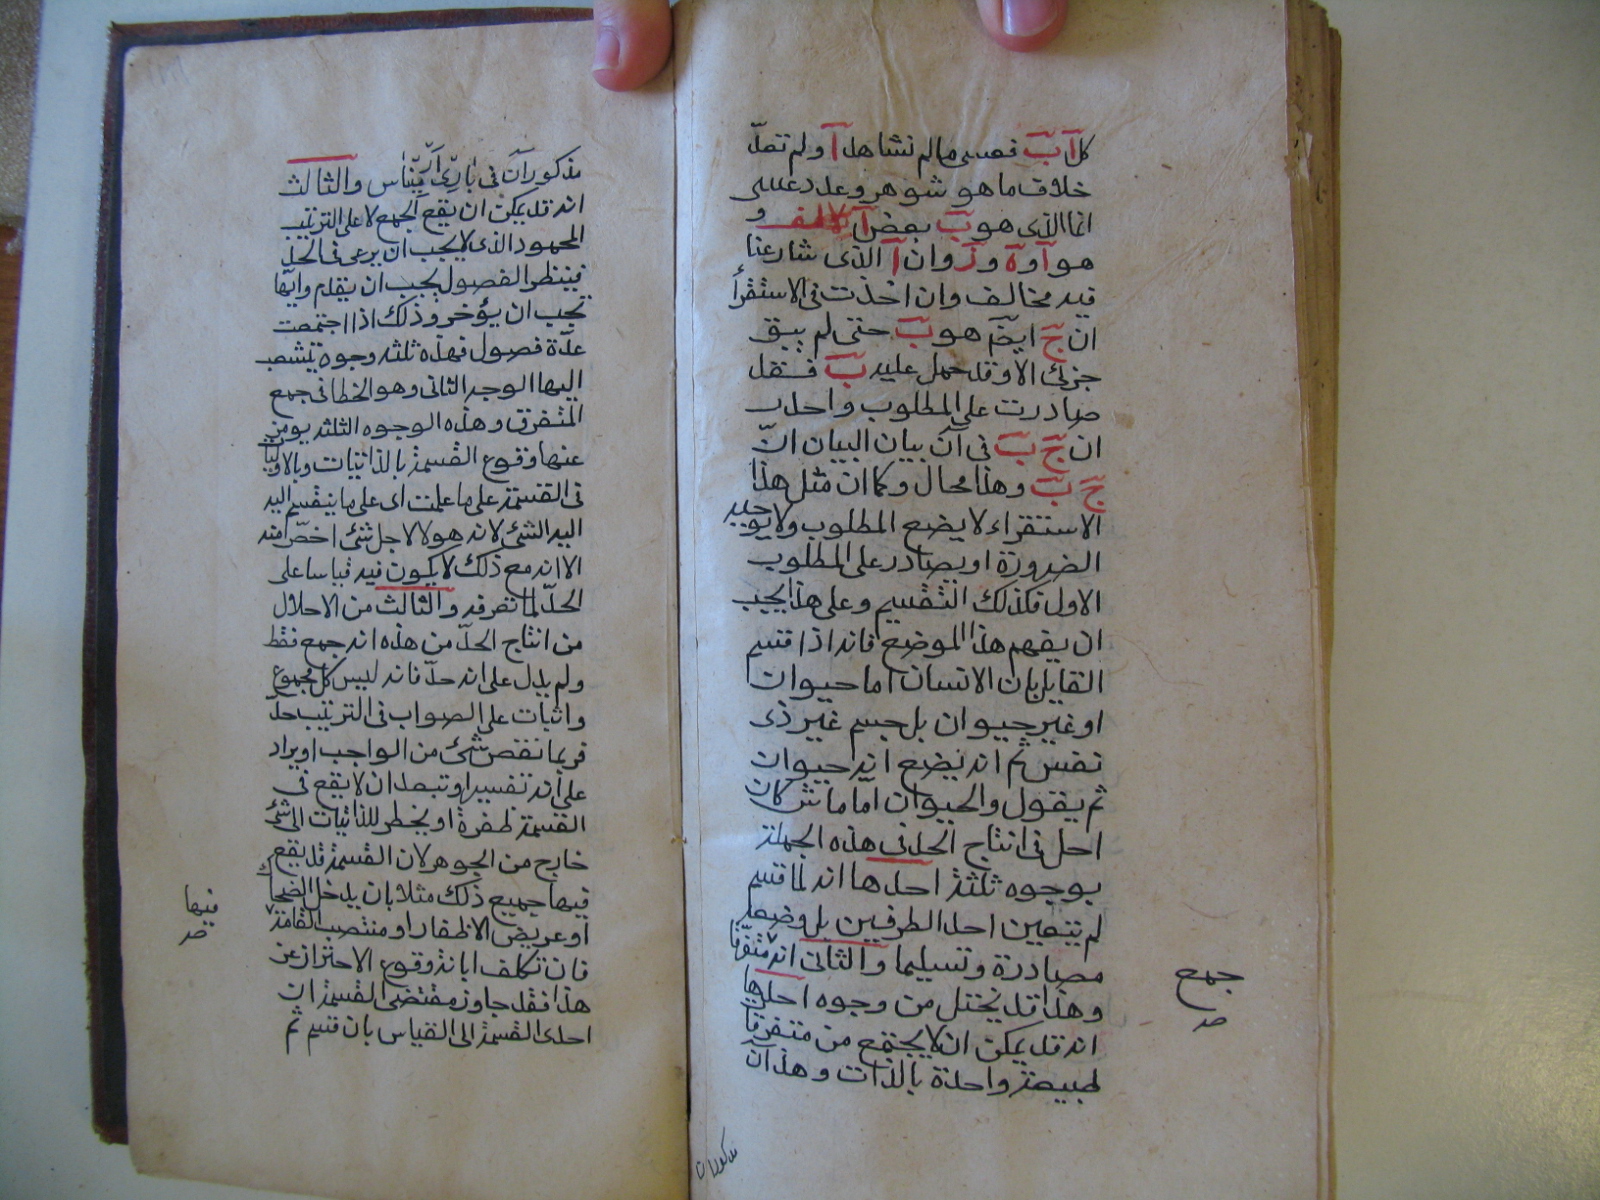 كل آ ب فعسى مالم نشاهد آ ولم تعدّ
خلاف ما هو شوهر وعدد عسى
انما الذى هو ب بعض آ لالف و
هو آ وة وز وان آ الذى شارعنا
فيه مخالف وان اخذت فى الاستقرأ
ان ج ايضم هو ب حتى لم يبق
جزئ الا وقد حمل عليه ب فقل
صادرت على المطلوب واحد
ان ج ب فى آن بيان البيان انّ
ج ب وهذا محال وكما ان مثل هذا
الاستقراء لا يضع المطلوب ولا يوجبه
الضرورة او يصادر على المطلوب
الاول فكذلك التقسيم وعلى هذا يجب
ان يفهم هذا الموضع فانه اذا قسم
القايل بان الانسان اما حيوان
او غير حيوان بل جسم غير ذى
نفس ثم انه يضع انه حيوان
ثم يقول والحيوان اما ماش كان
احل فى انتاج الحد فى هذه الجملة
بوجوه ثلثة احدها انه لما قسم
لم يتعين احد الطرفين بل وضعه
مصادرة وتسليما والثانى انه متفرقا
وهذا قد يختل من وجوه احديها
انه قد يمكن ان لا يجتمع من متفرقا
طبيعة واحدة بالذات وهذان
جمع
صد
مذكوران
مذكوران فى بارى ارمينياس والثالث
انه قد يمكن ان يقع الجمع لا على الترتيب
المحمود الذى لا يجب ان يرعى فى الحد
فينظر الفصول يجب ان يقدم وايها
تجب ان يؤخر وذلك اذا اجتمعت
عدّة فصول فهذه ثلثه وجوه يتشعب
اليها الوجه الثانى وهو الخطا فى جمع
المتفرق وهذه الوجوه الثلثه يومن
عنها وقوع القسمة بالذاتيات وبالاوليا
فى القسمة على ما علمت اى على ما ينقسم اليه
اليه الشئ لانه هو لا لاجل شئ اخصّ منه
الا انه مع ذلك لا يكون فيه قياسا على
الحدّ لما تعرفه والثالث من الاحلال
من انتاج الحدّ من هذه انه جمع فقط
ولم يدل على انه حدّ فانه ليس كل مجموع
واثبات على الصواب فى الترتيب حدّ
فربما نقص شئ من الواجب او يراد
على انه تفسير او تبعد ان لا يقع فى
القسمة طفرة او يخطر للذاتيات الى شئ
خارج من الجوهر لان القسمة قد يقع
فيها جميع ذلك مثلا بان يدخل الضحاك
او عريض الاظفار او منتصب القامة
فان تكلف ابانة وقوع الاحتراز عن
هذا فقد جاوز مقتضى القسمة ان
احدى القسمة الى القياس بان قسم ثم
فيها
صد